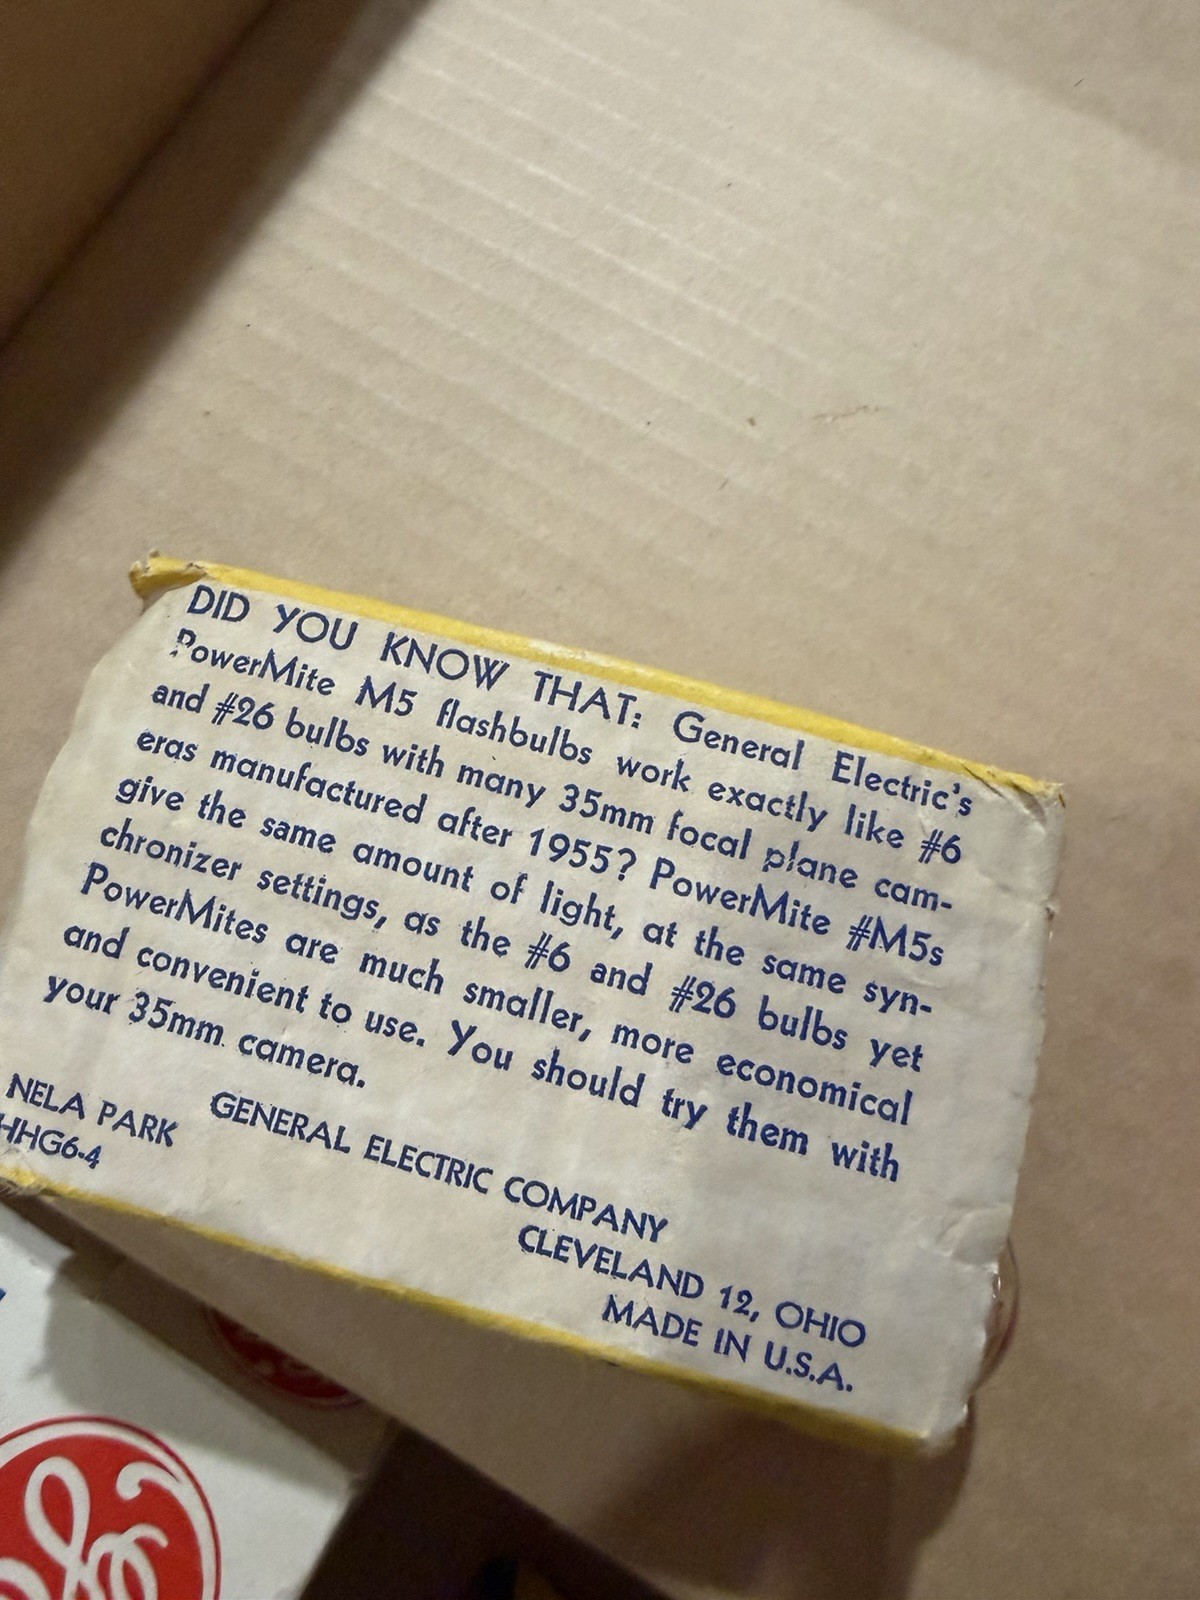 DID YOU KNOW THAT: General Electric's
PowerMite M5 flashbulbs work exactly like #6
and #26 bulbs with many 35mm focal plane cam-
eras manufactured after 1955? PowerMite #M5s
give the same amount of light, at the same syn-
chronizer settings, as the #6 and #26 bulbs yet
PowerMites are much smaller, more economical
and convenient to use. You should try them with
your 35mm camera.
GENERAL ELECTRIC COMPANY
NELA PARK
CLEVELAND 12, OHIO
HHG6-4
MADE IN U.S.A.